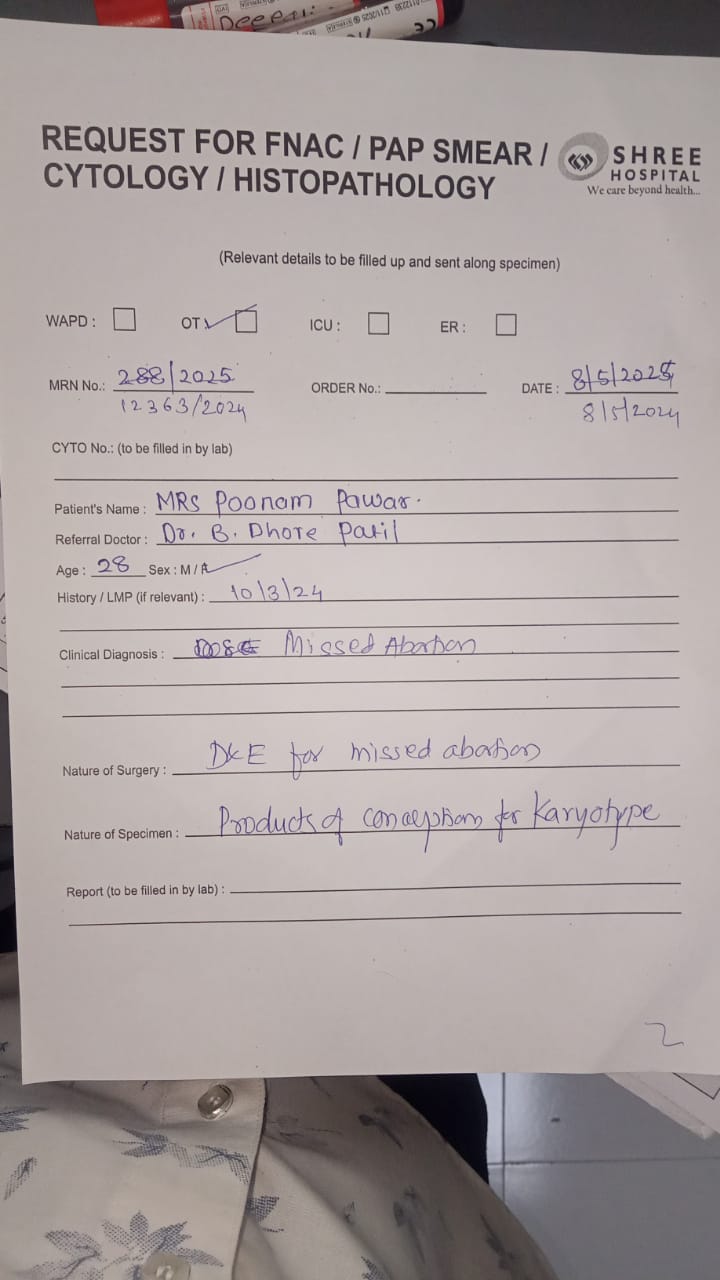 Deepti
REQUEST FOR FNAC / PAP SMEAR /
CYTOLOGY / HISTOPATHOLOGY
SHREE
HOSPITAL
We care beyond health...
(Relevant details to be filled up and sent along specimen)
WAPD : OT ICU : ER :
MRN No.: 288/2025 ORDER No.: DATE : 8/5/2025
12363/2024 8/5/2024
CYTO No.: (to be filled in by lab)
Patient's Name : MRS Poonam Pawar.
Referral Doctor : Dr. B. Dhore Patil
Age : 28 Sex : M /
History / LMP (if relevant) : 10/3/24
Clinical Diagnosis : Missed Abortion
Nature of Surgery : D&E for missed abortion
Nature of Specimen : Products of conception for Karyotype
Report (to be filled in by lab) :
2